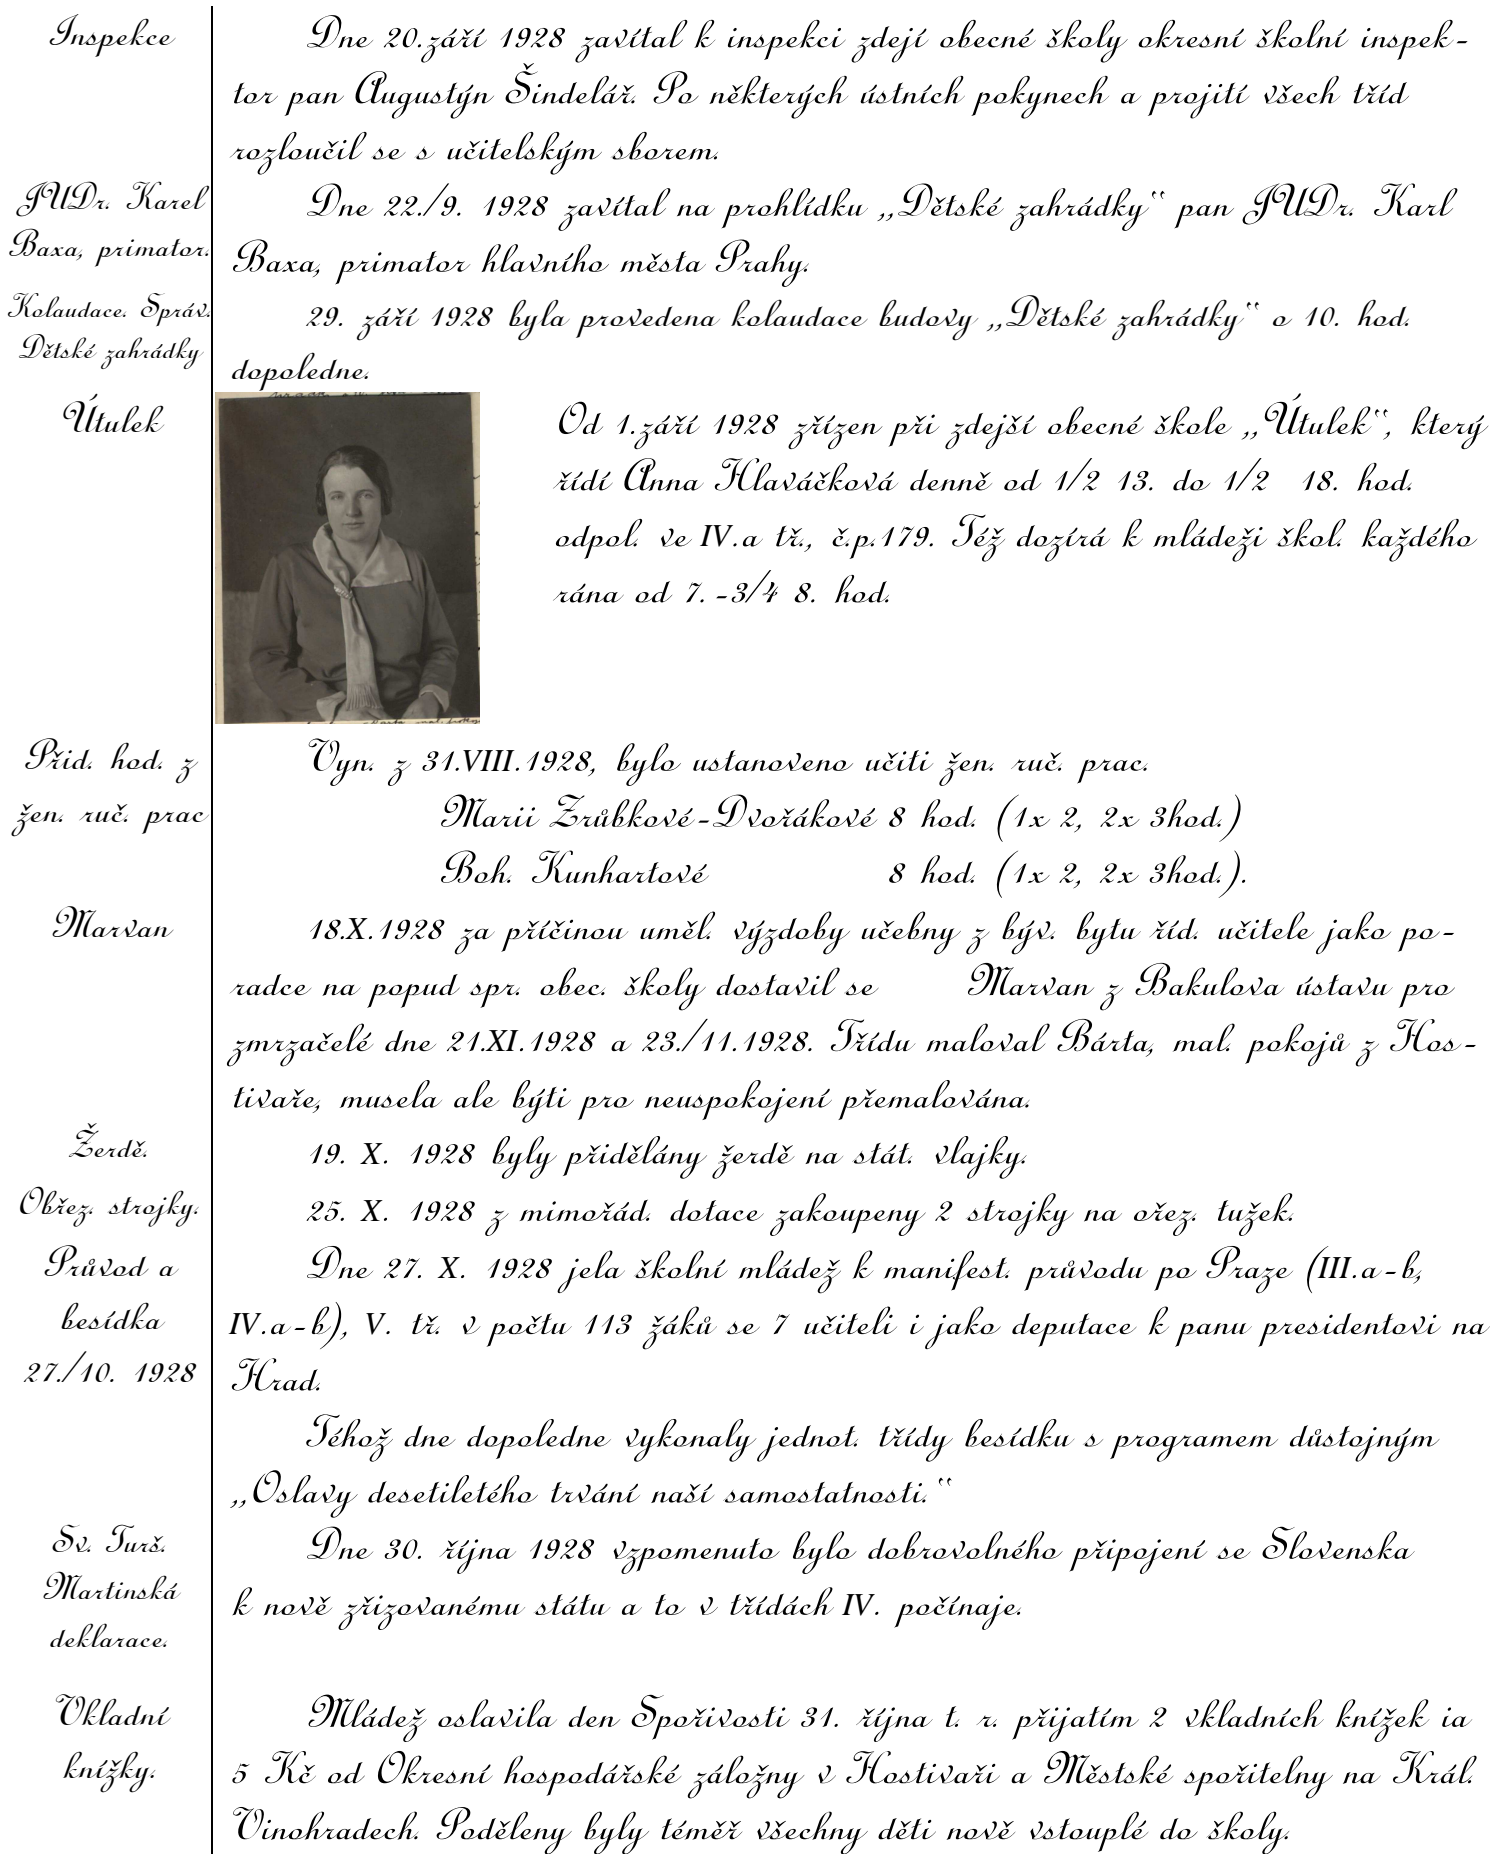 Inspekce
Dne 20.září 1928 zavítal k inspekci zdejí obecné školy okresní školní inspek-
tor pan Augustýn Šindelář. Po některých ústních pokynech a projití všech tříd
rozloučil se s učitelským sborem.
JUDr. Karel
Baxa, primator.
Dne 22./9. 1928 zavítal na prohlídku „Dětské zahrádky“ pan JUDr. Karl
Baxa, primator hlavního města Prahy.
Kolaudace. Správ.
Dětské zahrádky
29. září 1928 byla provedena kolaudace budovy „Dětské zahrádky“ o 10. hod.
dopoledne.
Útulek
Od 1.září 1928 zřízen při zdejší obecné škole „Útulek“, který
řídí Anna Hlaváčková denně od 1/2 13. do 1/2 18. hod.
odpol. ve IV.a tř., č.p.179. Též dozírá k mládeži škol. každého
rána od 7. -3/4 8. hod.
Přid. hod. z
žen. ruč. prac
Vyn. z 31.VIII.1928, bylo ustanoveno učiti žen. ruč. prac.
Marii Zrůbkové-Dvořákové 8 hod. (1x 2, 2x 3hod.)
Boh. Kunhartové 8 hod. (1x 2, 2x 3hod.).
Marvan
18.X.1928 za příčinou uměl. výzdoby učebny z býv. bytu říd. učitele jako po-
radce na popud spr. obec. školy dostavil se Marvan z Bakulova ústavu pro
zmrzačelé dne 21.XI.1928 a 23./11.1928. Třídu maloval Bárta, mal. pokojů z Hos-
tivaře, musela ale býti pro neuspokojení přemalována.
Žerdě.
19. X. 1928 byly přidělány žerdě na stát. vlajky.
Obřez. strojky.
25. X. 1928 z mimořád. dotace zakoupeny 2 strojky na ořez. tužek.
Průvod a
besídka
27./10. 1928
Dne 27. X. 1928 jela školní mládež k manifest. průvodu po Praze (III.a-b,
IV.a-b), V. tř. v počtu 113 žáků se 7 učiteli i jako deputace k panu presidentovi na
Hrad.
Téhož dne dopoledne vykonaly jednot. třídy besídku s programem důstojným
„Oslavy desetiletého trvání naší samostatnosti.“
Sv. Turš.
Martinská
deklarace.
Dne 30. října 1928 vzpomenuto bylo dobrovolného připojení se Slovenska
k nově zřizovanému státu a to v třídách IV. počínaje.
Vkladní
knížky.
Mládež oslavila den Spořivosti 31. října t. r. přijatím 2 vkladních knížek ia
5 Kč od Okresní hospodářské záložny v Hostivaři a Městské spořitelny na Král.
Vinohradech. Poděleny byly téměř všechny děti nově vstouplé do školy.